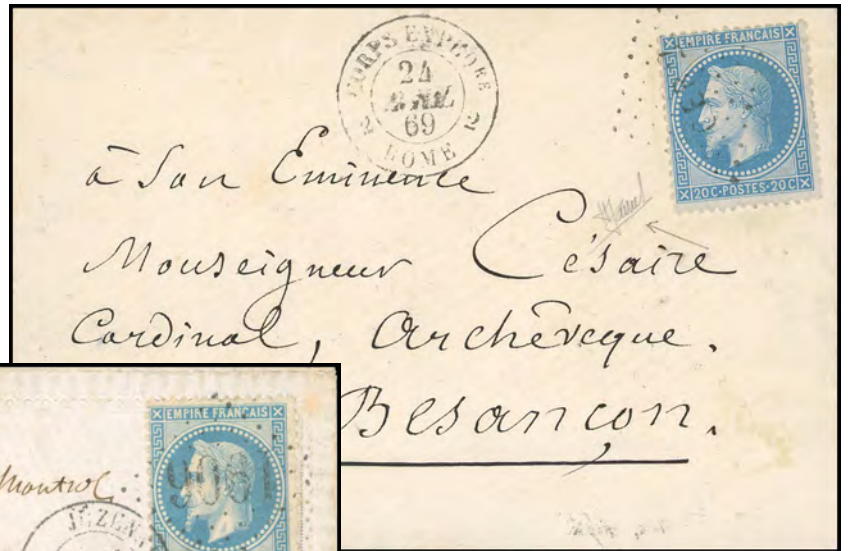 CORPS EXP. ROME
24
69
2 2
ROME
EMPIRE FRANCAIS
20C·POSTES·20C
à Son Eminence
Monseigneur Césaire
Cardinal, Archevêque.
Besançon.
EMPIRE FRANCAIS